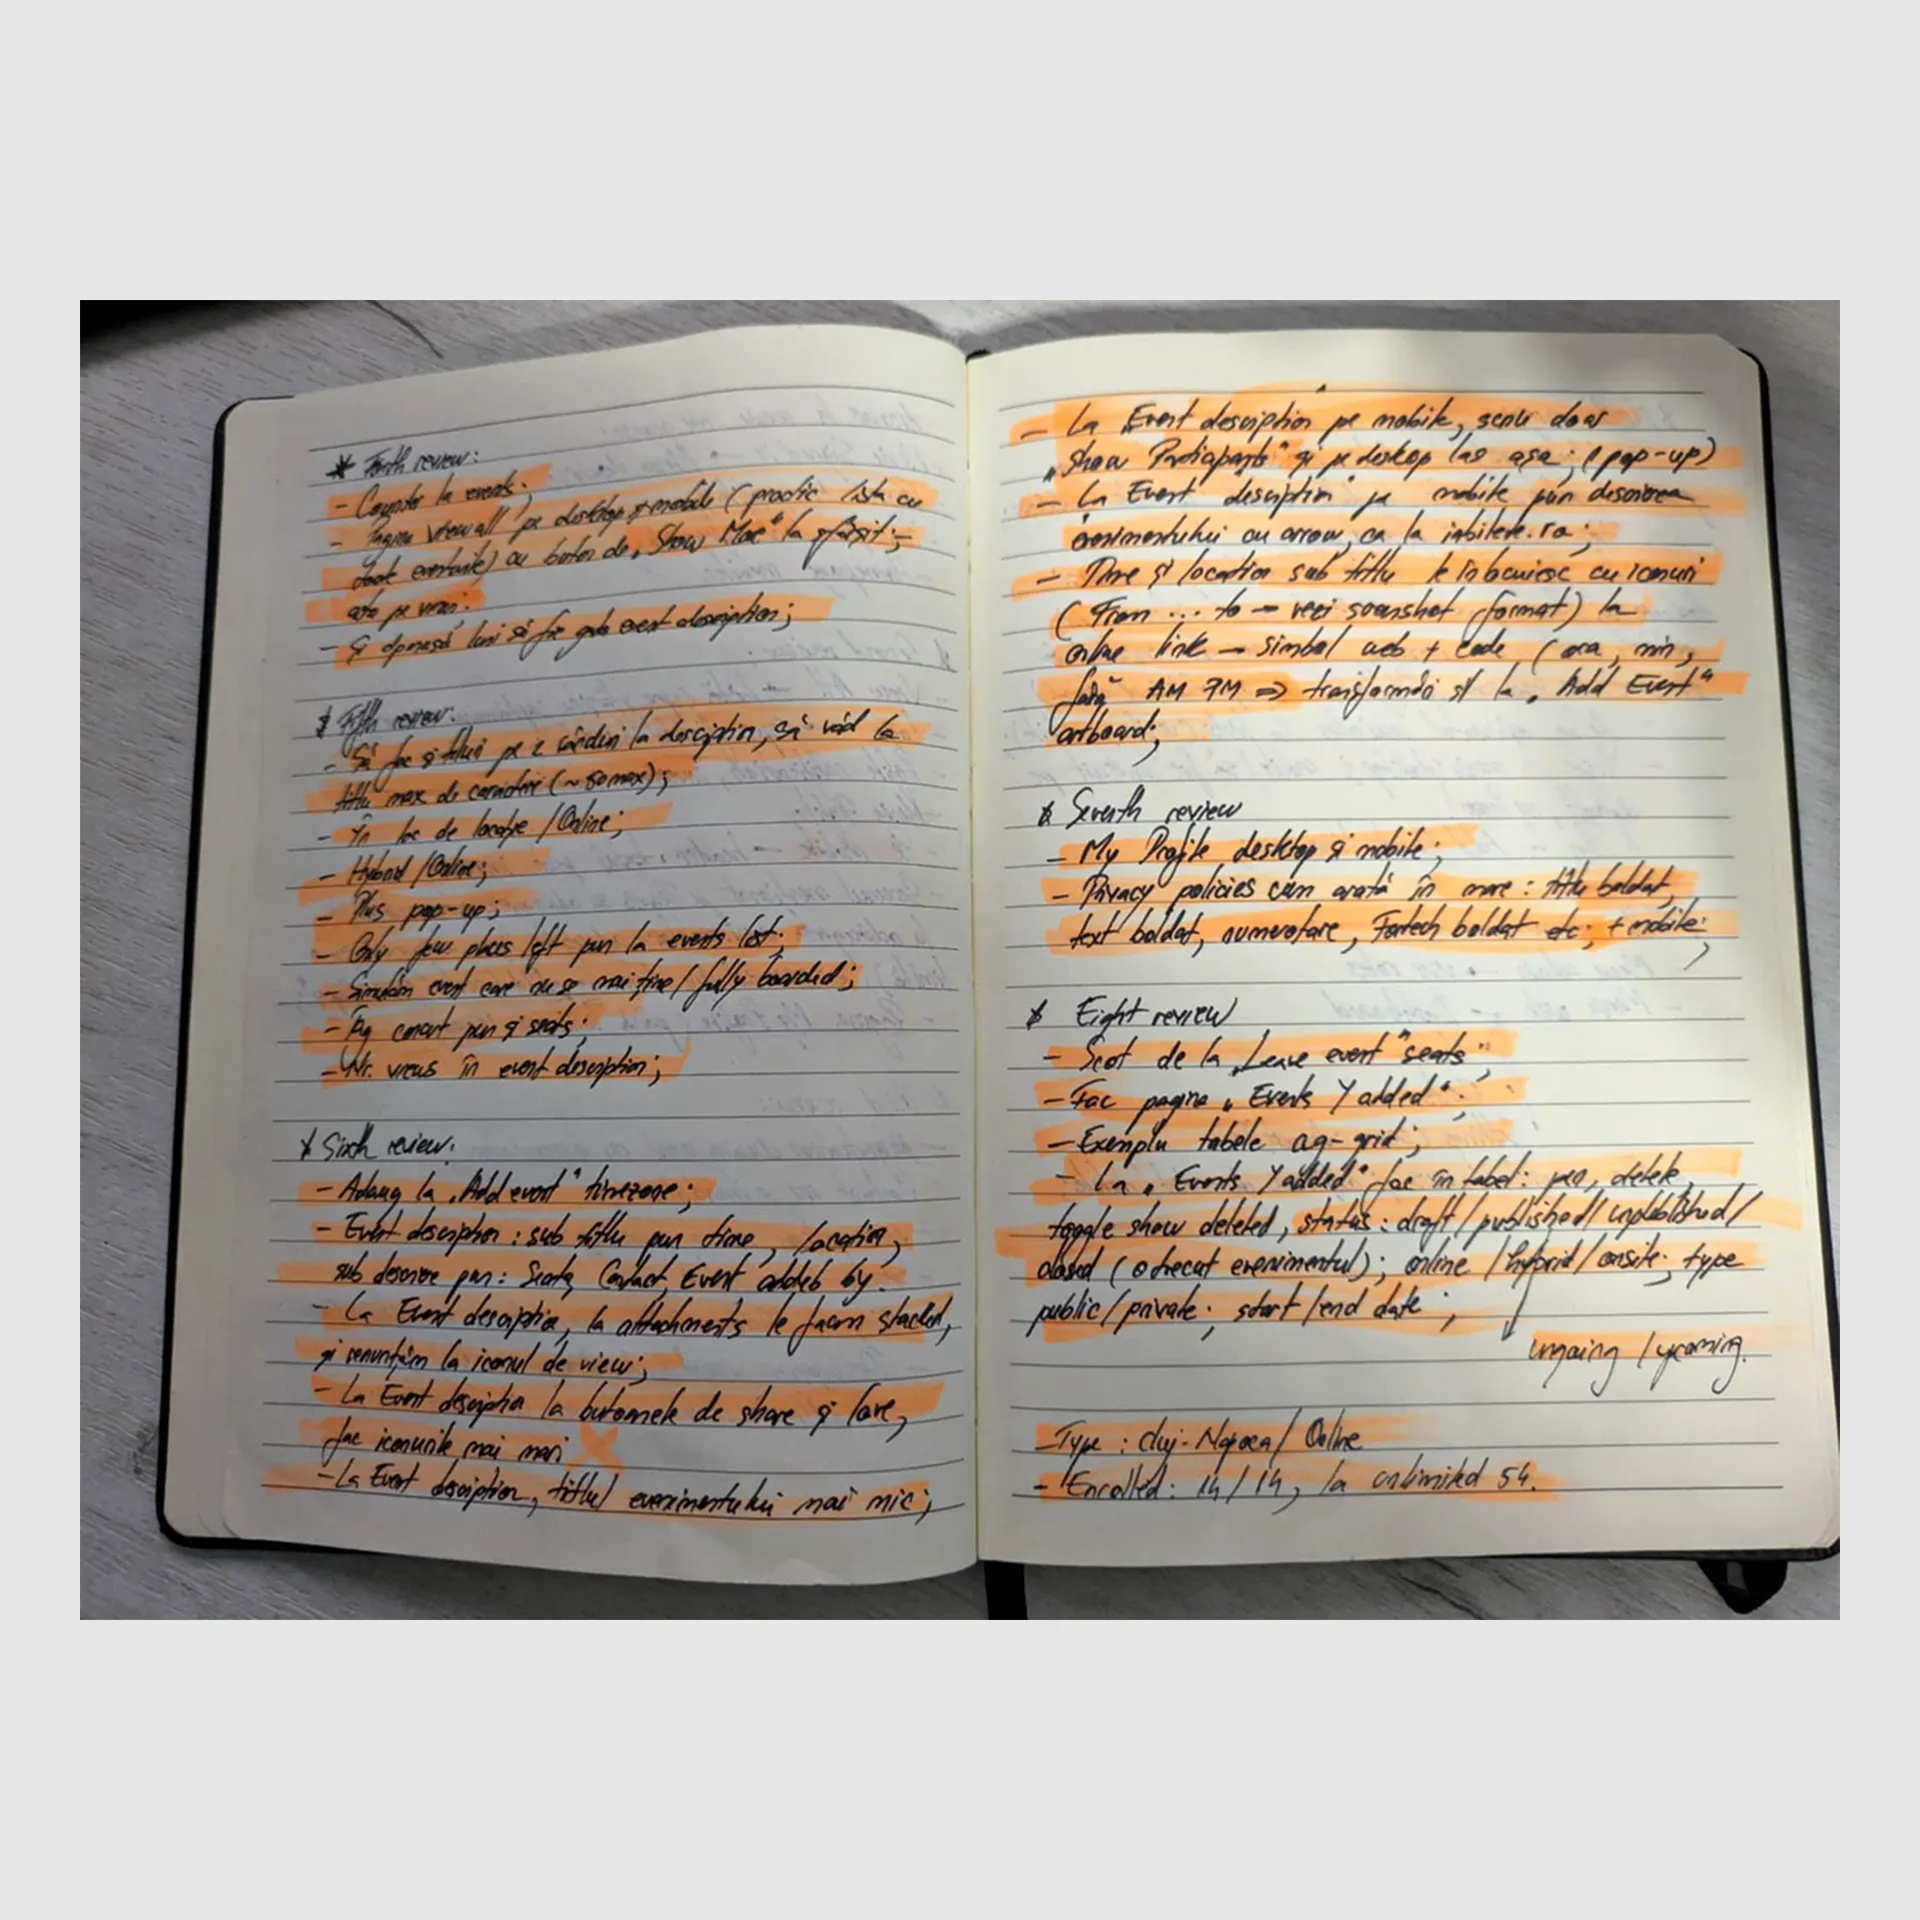 * Forth review:
- la events;
- Pagina "view all" pe desktop și mobile (practic lista cu
toate eventurile) cu buton de „Show More" la sfârșit;
asta pe vineri.
- Și luni să fie gata event description;
* Fifth review:
- Să fac și titlul pe 2 rânduri la description, să văd la
titlu max de caractere (~50 max);
- În loc de locație / Online;
- Hybrid / Online;
- Plus pop-up;
- Only few places left pun la events list;
- Simulăm event care nu se mai ține / fully boarded;
- pun și seats;
- Nr. views în event description;
* Sixth review:
- Adaug la „Add event" timezone;
- Event description: sub titlu pun time, location,
sub descriere pun: Seats, Contact, Event added by.
- La Event description, la attachments le facem stacked,
și renunțăm la iconul de view;
- La Event description la butoanele de share și love,
fac iconurile mai mari
- La Event description, titlul evenimentului mai mic;
- La „Event description pe mobile, scriu doar
„Show Participants" și pe desktop las așa; (pop-up)
- La "Event description" pe mobile pun descrierea
evenimentului cu arrow, ca la iabilete.ro;
- Time și location sub titlu le înlocuiesc cu iconuri
(From ... to → vezi screenshot format) la
online link → simbol web + code (ora, min,
fără AM PM => transformări și la „Add Event"
artboard;
* Seventh review
- My Profile desktop și mobile;
- Privacy policies cum arată în mare: titlu boldat,
text boldat, numerotare, Fortech boldat etc; + mobile;
* Eight review
- Scot de la „Leave event" seats;
- Fac pagina „Events Y added";
- Exemplu tabele ag-grid;
- La „Events Y added" fac în tabel: pen, delete,
toggle show deleted, status: draft / published / unpublished /
closed (a trecut evenimentul); online / hybrid / onsite; type
public / private; start / end date;
ongoing / upcoming.
- Type: Cluj-Napoca / Online
- Enrolled: 14/14, la unlimited 54.